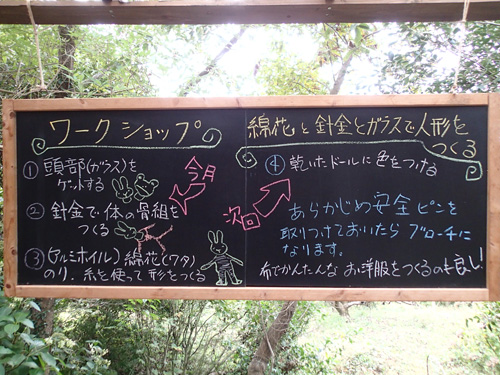 ワークショップ
① 頭部(ガラス)を
ゲットする
② 針金で体の骨組を
つくる
③ (アルミホイル) 綿花(ワタ)
のり、糸を使って形をつくる
今月
綿花と針金とガラスで人形を
つくる
④ 乾いたドールに色をつける
次回
あらかじめ安全ピンを
取りつけておいたらブローチに
なります。
布でかんたんなお洋服をつくるのも良し!